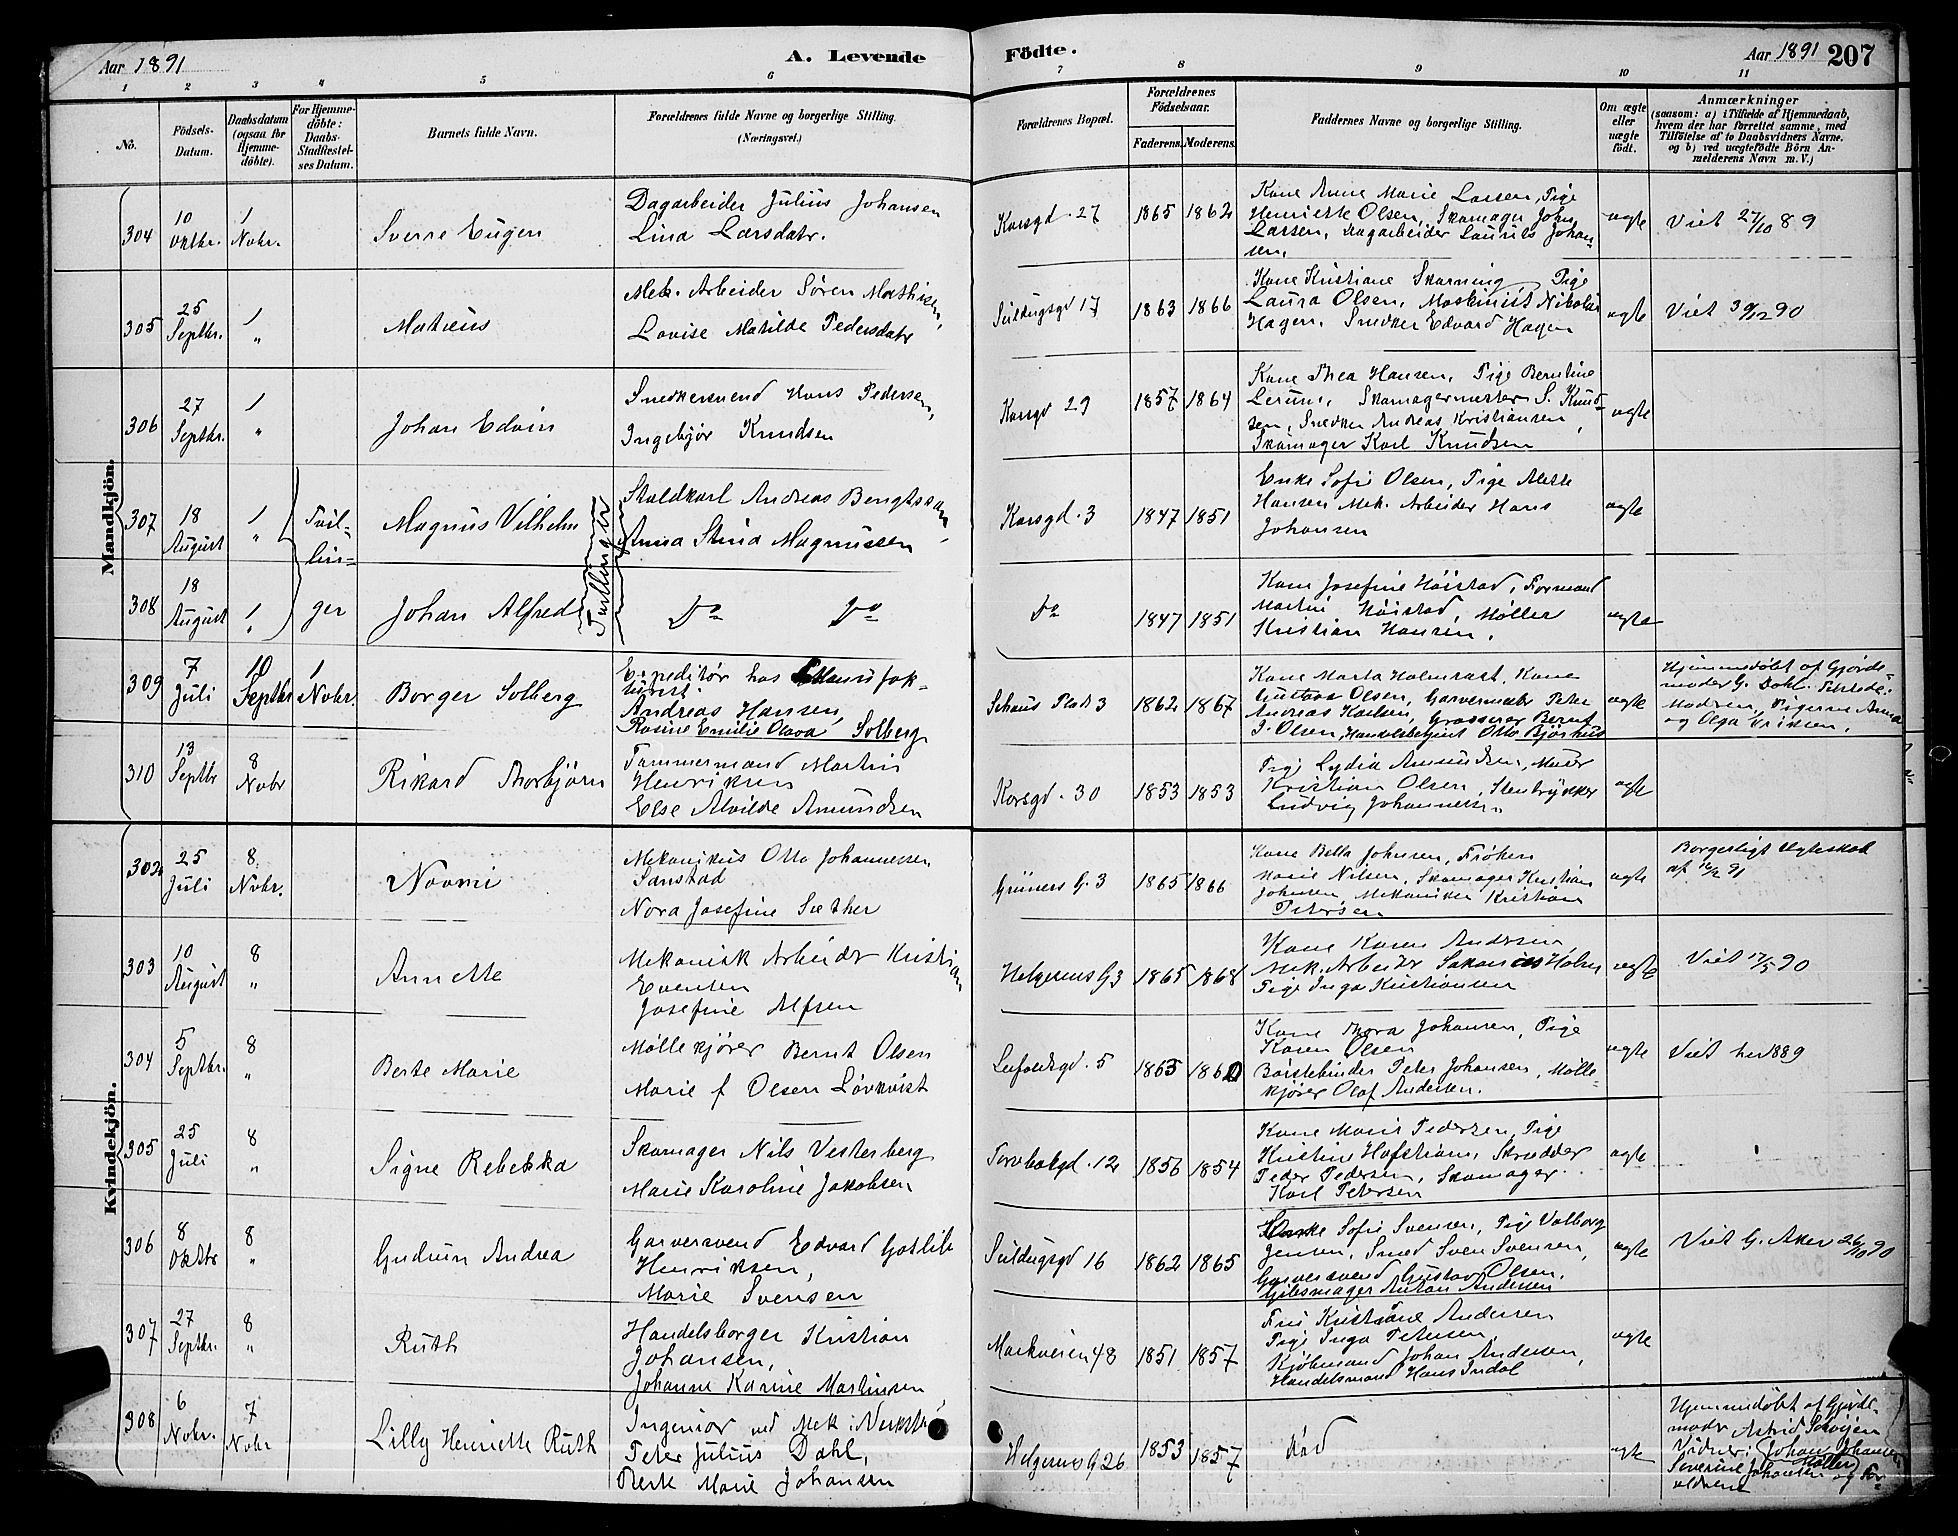 Aar 1891
A. Levende
Födte.
Aar 1891 207
1 2 3 4 5 6 7 8 9 10 11
No.
Födsels-Datum.
Daabsdatum (ogsaa for Hjemme-döbte).
For Hjemme-döbte: Daabs-Stadfæstel-ses Datum.
Barnets fulde Navn.
Forældrenes fulde Navne og borgerlige Stilling.
(Næringsvei.)
Forældrenes Bopæl.
Forældrenes Födselsaar.
Faderens. Moderens.
Faddernes Navne og borgerlige Stilling.
Om ægte eller uægte födt.
Anmærkninger
(saasom: a) i Tilfælde af Hjemmedaab,
hvem der har forrettet samme, med
Tilföielse af to Daabsvidners Navne.
og b) ved uægtefödte Börn An-
melderens Navn m. V.)
Mandkjön.
304 10 Oktbr. 1 Novbr. Sverre Eugen
Dagarbeider Julius Johansen
Lina Larsdatr.
Korsgd. 27 1865 1862
Kone Anne Marie Larsen, Pige
Henriette Olsen, Skomager Johs.
Larsen, Dagarbeider Laurits Johan-
sen.
ægte Viet 27/10 89
305 25 Septbr. 1 " Mateus
Mek. Arbeider Sören Mathisen,
Lovise Matilde Pedersdatr
Seildugsgd 17 1863 1866
Kone Kristiane Skorning, Pige
Laura Olsen, Maskinist Nikolai
Hagen, Snedker Edvard Hagen
ægte Viet 30/12 90
306 27 Septbr. 1 " Johan Edvin
Snedkersvend Hans Pedersen,
Ingebjör Knudsen
Korsgd 29 1857 1864
Kone Thea Hansen, Pige Berntine
Lerum, Skomagermester S. Knud-
sen, Snedker Andreas Kristiansen,
Skomager Karl Knudsen
ægte
307 18 August 1 " Tvil-lin-ger Magnus Vilhelm
Tvillinger
Staldkarl Andreas Bengtsson,
Anna Stina Magnussen
Korsgd. 3 1847 1851
Enke Sofie Olsen, Pige Alette
Hansen Mek. Arbeider Hans
Johansen
ægte
308 18 August 1 " Johan Alfred
Do Do
Do 1847 1851
Kone Josefine Höistad, Formand
Martin Höistad, Möller
Kristian Hansen.
ægte
309 7 Juli 10 Septbr 1 Novbr. Borger Solberg
Expeditör hos Manufak-
turist
Andreas Hansen,
Rosine Emilie Olava Solberg
Schous Plads 3 1862 1867
Kone Marta Holmrast, Kone
Gustava Olsen, Garvermester Peter
Andreas Karlsen, Grosserer Bernt
J. Olsen, Handelsbetjent Otto Björhus
ægte
Hjemmedöbt af Gjorde-
moder G. Dahl.
Pigerne Anna
og Olga Eriksen.
310 13 Septbr 8 Novbr Rikard Thorbjörn
Tömmermand Martin
Henriksen
Else Alvilde Amundsen
Korsgd. 30 1853 1853
Pige Lydia Amundsen, Murer
Kristian Olsen, Stenbrydder
Ludvig Johannesen
ægte
Kvindekjön.
302 25 Juli 8 Novbr. Novmi
Mekanikus Otto Johannessen
Sanstad
Nora Josefine Sæther
Grüners G. 3 1865 1866
Kone Betta Johnsen, Fröken
Marie Nilsen, Skomager Kristian
Johnsen, Mekaniker Kristian
Petersen
ægte
Borgerligt Ægteskab
303 10 August 8 " Annette
Mekanisk Arbeider Kristian
Evensen
Josefine Alfsen
Helgesens G 3 1865 1868
Kone Karen Andersen,
Mek. Arbeider Sakarias Holm
Pige Inga Kristiansen
ægte Viet 17/5 90
304 5 Septbr. 8 " Berte Marie
Möllekjörer Bernt Olsen
Marie f Olsen Lövkvist
Leifoldsgd. 5 1863 1860
Kone Thora Johansen, Pige
Karen Olsen
Börstebinder Peter Johansen, Mölle-
kjörer Olaf Andersen.
ægte Viet her 1889
305 25 Juli 8 " Signe Rebekka
Skomager Nils Vesterberg
Marie Karoline Jakobsen
Torvbakgd. 12 1856 1854
Kone Marie Pedersen, Pige
Kristine Hofström, Skrædder
Peder Pedersen, Skomager
Karl Petersen
ægte
306 8 Oktbr 8 " Gudrun Andrea
Garversvend Edvard Gotlib
Henriksen,
Marie Svensen
Seildugsgd 16 1862 1865
Enke Sofie Svensen, Pige Valborg
Jensen, Smed Sven Svensen,
Garversvend Gustav Olsen,
Gibsmager Anton Andersen
ægte Viet G. Aker 26/10 90
307 27 Septbr. 8 " Ruth
Handelsborger Kristian
Johansen,
Johanne Karine Martinsen
Markveien 48 1851 1857
Fru Kristiane Andersen
Pige Inga Petersen,
Kjöbmand Johan Andersen,
Handelsmand Hans Indal
ægte
308 6 Novbr. 7 Novbr Lilly Henriette Ruth
Ingeniör ved Mek. Verkste
Peter Julius Dahl,
Berte Marie Johansen
Helgesens G 26 1853 1857
Död
ægte
Hjemmedöbt af Gjorde-
moder Astrid
Vidner: Johan Johansen
(Möller)
Severine Johansen og For-
ældrene